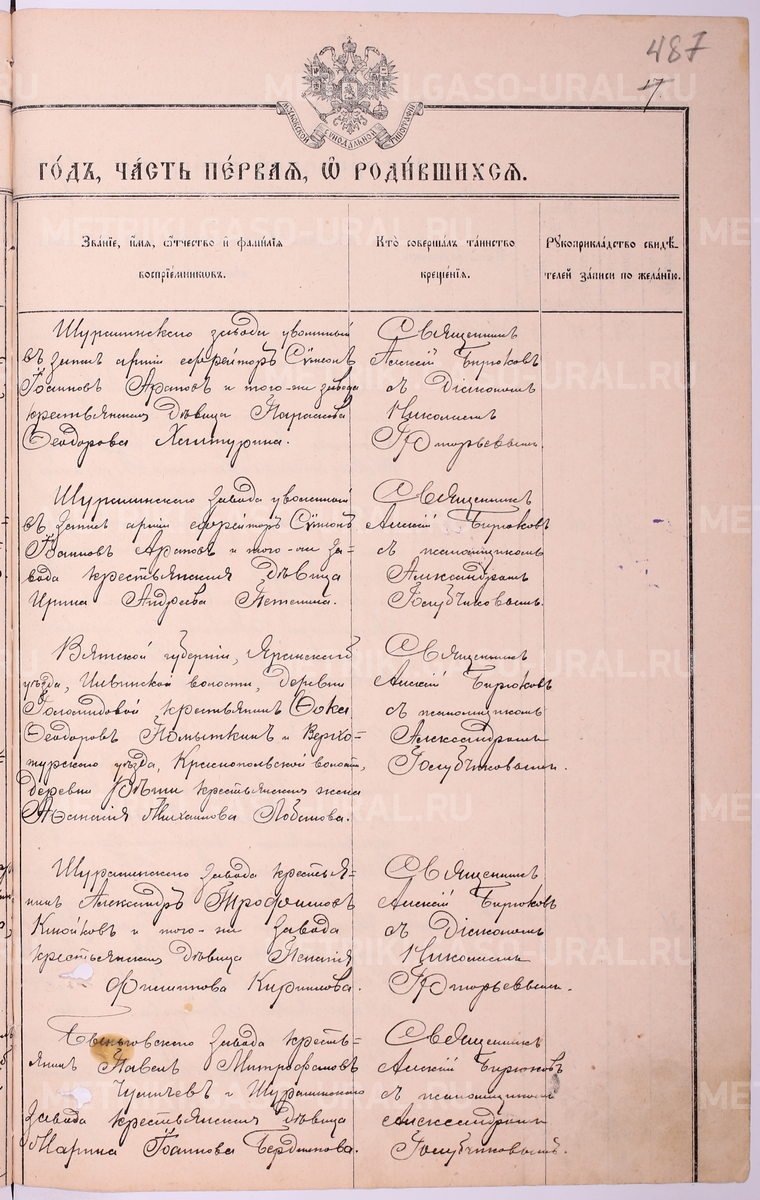 487
17
МОСКОВСКОЙ СѴНОДАЛЬНОЙ ТИПОГРАФІИ
ГО́ДЪ, ЧА́СТЬ ПЕ́РВАѦ, Ѡ҆ РОДИ́ВШИХСѦ.
Зва́нїе, и҆́мѧ, ѻ҆́тчество и҆ фами́лїѧ
воспрїе́мникѡвъ.
Кто̀ соверша́лъ та́инство
креще́нїѧ.
Рꙋкоприкла́дство свидѣ́-
телей за́писи по жела́нїю.
Шуралинскаго завода уволенный
въ запас арміи ефрейторъ Сѵмеонъ
Іоанновъ Араповъ и того-же завода
крестьянская дѣвица Параскева
Ѳеодорова Хаттурина.
Священникъ
Алексій Бирюковъ
съ Діакономъ
Николаемъ
Григорьевымъ.
Шуралинскаго завода уволенный
въ запас арміи ефрейторъ Сѵмеонъ
Іоанновъ Араповъ и того-же за=
вода крестьянская дѣвица
Ирина Андреева
Священникъ
Алексій Бирюковъ
съ псаломщикомъ
Александромъ
Голубчиковымъ.
Вятской губерніи, Яранскаго
уѣзда, Ильинской волости, деревни
крестьянинъ Ѳока
Ѳеодоровъ Помыткинъ и Верхо=
турскаго уѣзда, Краснопольской волости,
деревни крестьянская жена
Аѳанасія Михаилова Лобанова.
Священникъ
Алексій Бирюковъ
съ псаломщикомъ
Александромъ
Голубчиковымъ.
Шуралинскаго завода крестья=
нинъ Александръ Трофимовъ
и того-же завода
крестьянская дѣвица
Филиппова Кириллова.
Священникъ
Алексій Бирюковъ
съ Діакономъ
Николаемъ
Григорьевымъ.
завода кресть=
янинъ Павелъ Митрофановъ
и Шуралинскаго
завода крестьянская дѣвица
Марина Іоаннова Бердникова.
Священникъ
Алексій Бирюковъ
съ псаломщикомъ
Александромъ
Голубчиковымъ.
METRIKI.GASO-URAL.RU